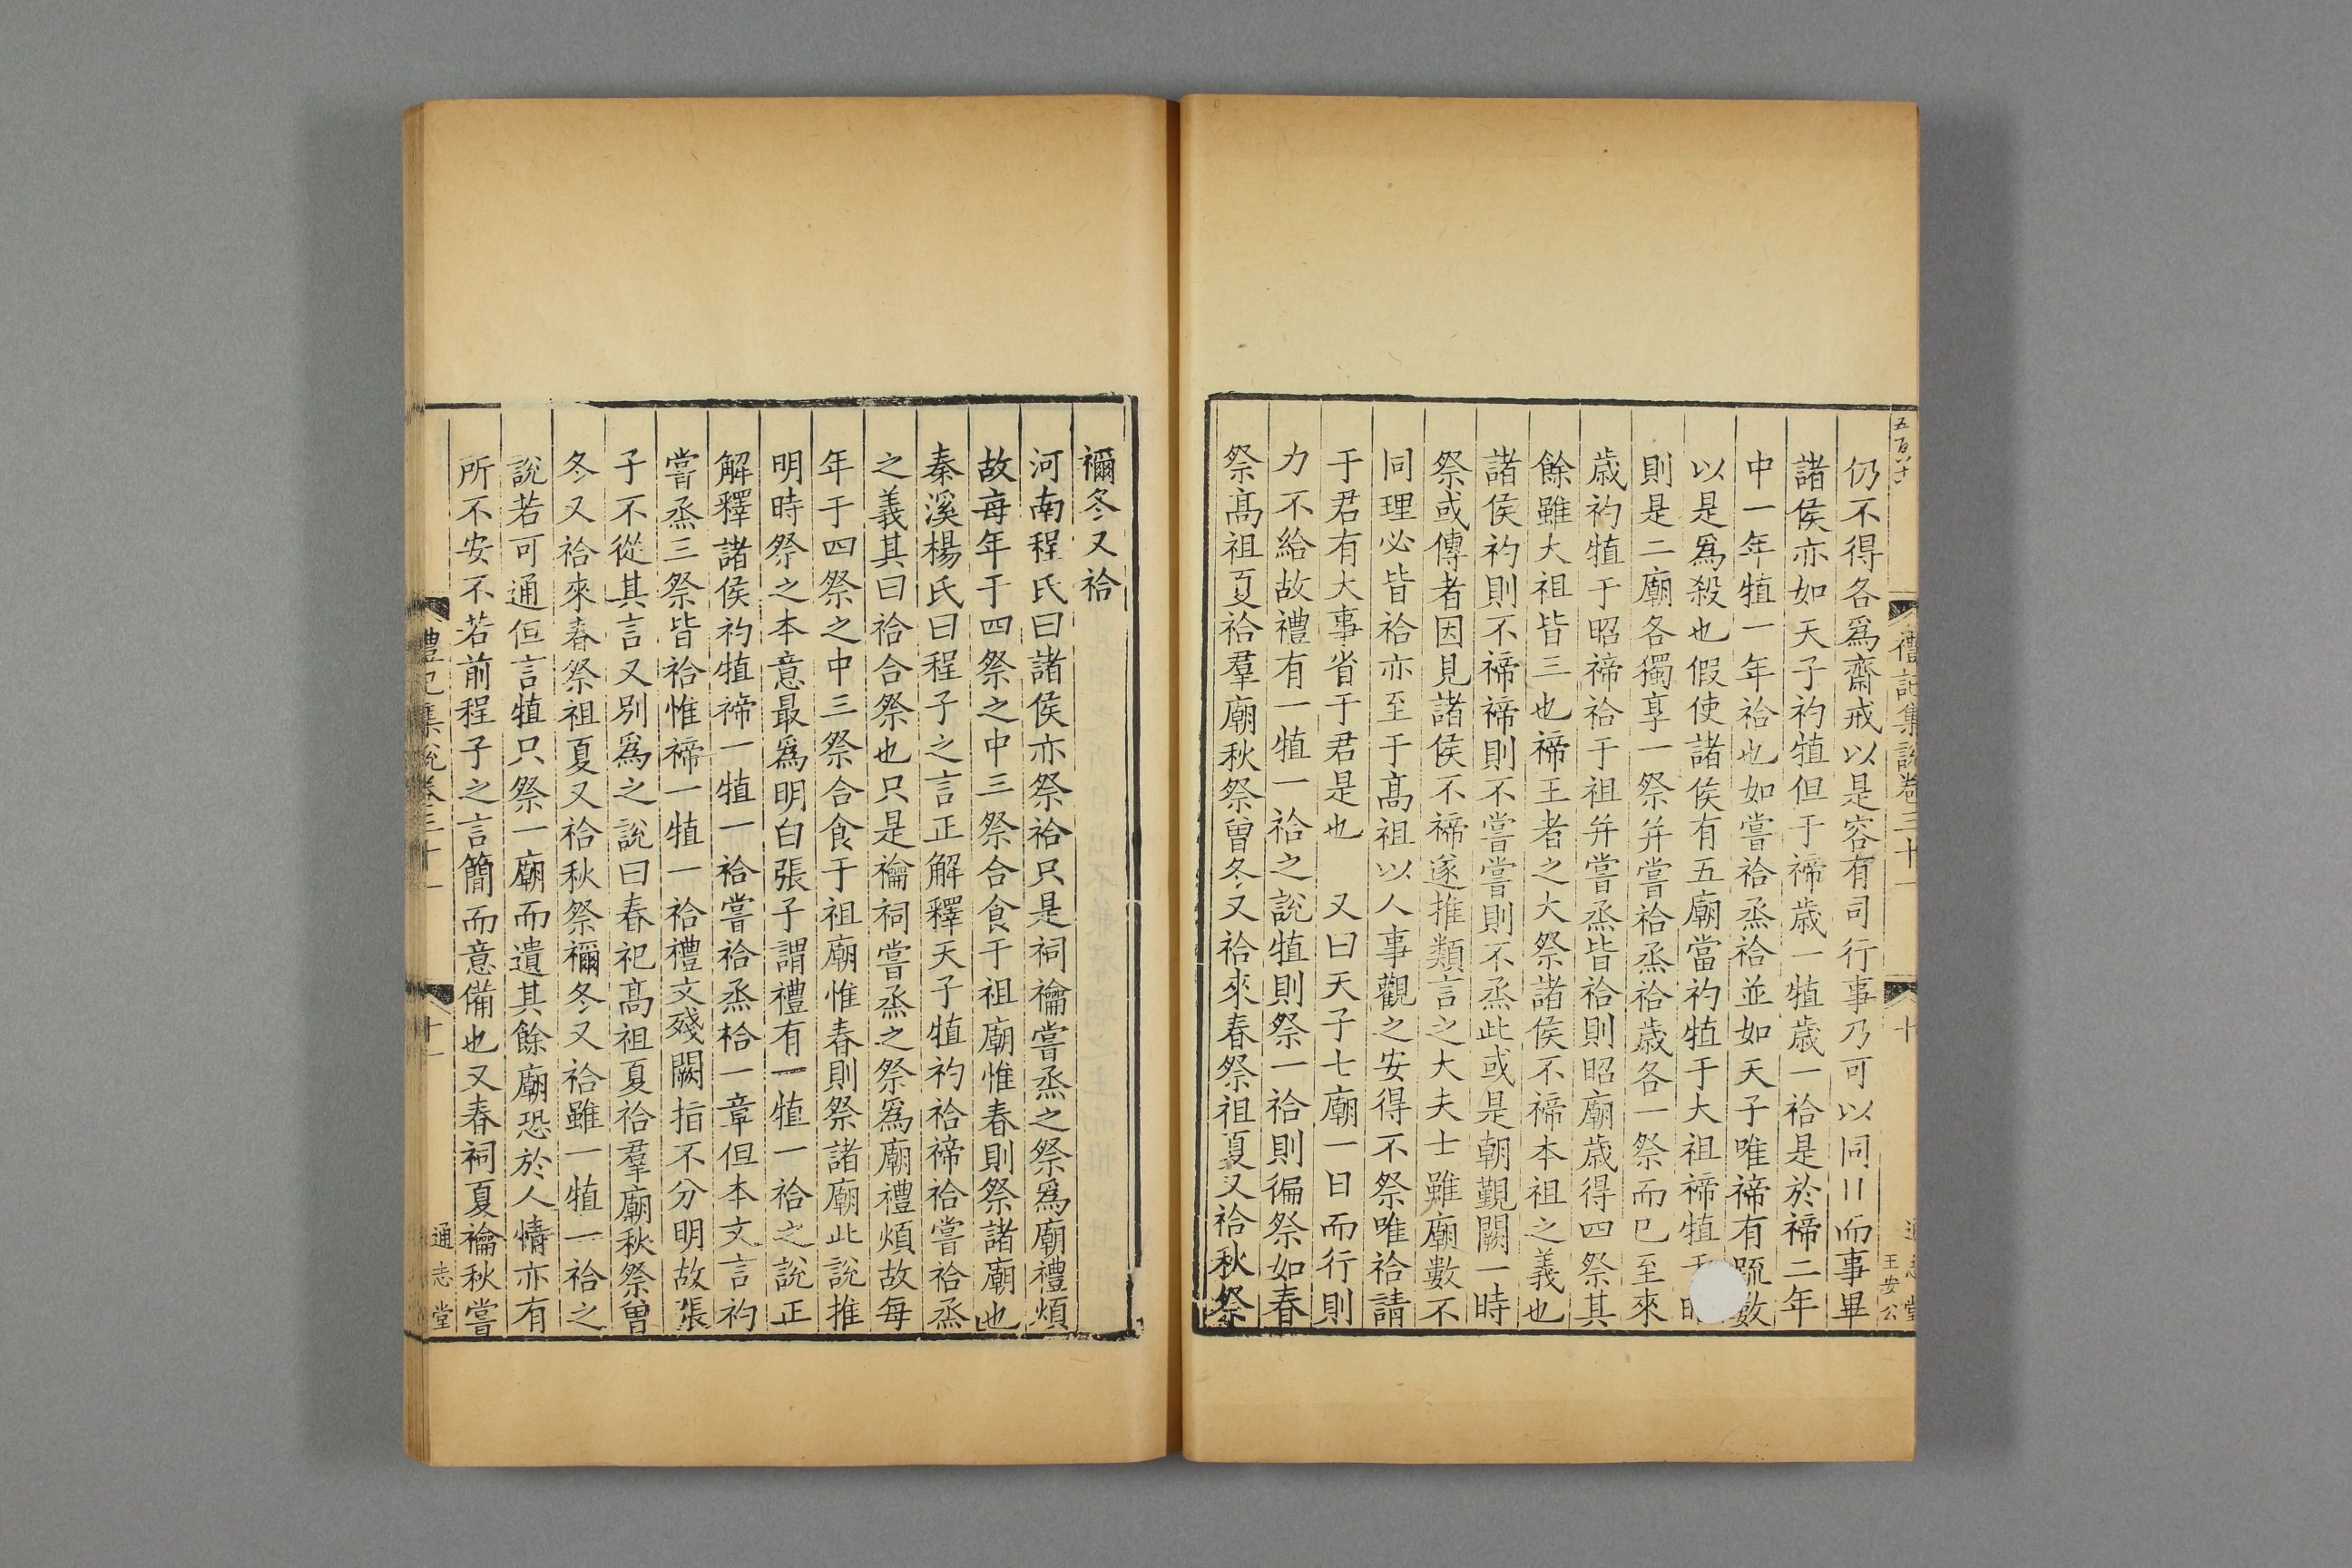 五百八十
禮記集說卷三十一
十
通志堂
王安公
仍不得各爲齋戒以是容有司行事乃可以同日而事畢
諸侯亦如天子礿犆但于禘歲一犆歲一祫是於禘二年
中一年犆一年祫也如嘗祫烝祫並如天子唯禘有䟽數
以是爲殺也假使諸侯有五廟當礿犆于大祖禘犆于
則是二廟各獨享一祭并嘗祫烝祫歲各一祭而已至來
歲礿犆于昭禘祫于祖并嘗烝皆祫則昭廟歲得四祭其
餘雖大祖皆三也禘王者之大祭諸侯不禘本祖之義也
諸侯礿則不禘禘則不嘗嘗則不烝此或是朝覲闕一時
祭或傳者因見諸侯不禘遂推類言之大夫士雖廟數不
同理必皆祫亦至于髙祖以人事觀之安得不祭唯祫請
于君有大事省于君是也　又曰天子七廟一日而行則
力不給故禮有一犆一祫之說犆則祭一祫則徧祭如春
祭髙祖夏祫羣廟秋祭曽冬又祫來春祭祖夏又祫秋祭
禰冬又祫
河南程氏曰諸侯亦祭祫只是祠禴嘗烝之祭爲廟禮煩
故毎年于四祭之中三祭合食于祖廟惟春則祭諸廟也
秦溪楊氏曰程子之言正解釋天子犆礿祫禘祫嘗祫烝
之義其曰祫合祭也只是禴祠嘗烝之祭爲廟禮煩故每
年于四祭之中三祭合食于祖廟惟春則祭諸廟此說推
明時祭之本意最爲明白張子謂禮有一犆一祫之說正
解釋諸侯礿犆禘一犆一祫嘗祫烝祫一章但本文言礿
嘗烝三祭皆祫惟禘一犆一祫禮文殘闕指不分明故張
子不從其言又別爲之說曰春祀髙祖夏祫羣廟秋祭曽
冬又祫來春祭祖夏又祫秋祭禰冬又祫雖一犆一祫之
說若可通但言犆只祭一廟而遺其餘廟恐於人情亦有
所不安不若前程子之言簡而意備也又春祠夏禴秋嘗
禮記集說卷三十一
十一
通志堂